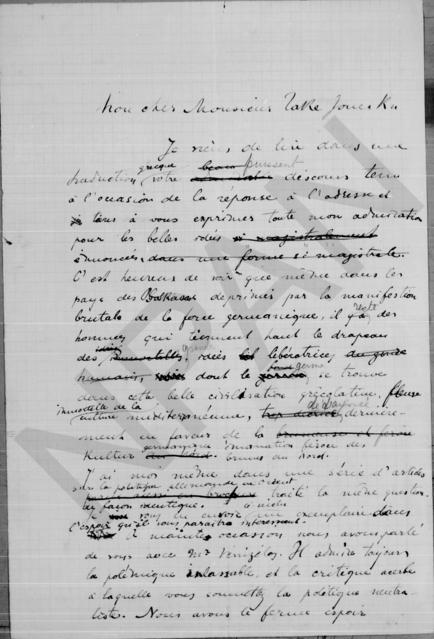 Mon cher Monsieur Take Jonesku
Je viens de lire dans une
traduction grecque votre puissant discours tenu
à l'occasion de la réponse à l'adresse et
je tiens à vous exprimer toute mon admiration
pour les belles idées si magistralement
énoncées dans une forme si magistrale.
C'est heureux de voir que même dans les
pays des Balkans déprimés par la manifestion
brutale de la force germanique, il y a des
hommes qui tiennent haut le drapeau
des idées libératrices du genre
humain, dont le germe se trouve
dans cette belle civilisation grécolatine,
culture méditerranéenne, dernière-
ment en faveur de la
Kultur du Nord.
J'ai moi même dans une série d'articles
sur la politique allemande en Orient
traité la même question
de façon identique.
vous en envoie un exemplaire dans
l'espoir qu'il vous paraîtra intéressant.
A mainte occasion nous avons parlé
de vous avec Mr Venizelos. Il admire toujours
la polémique inlassable, et la critique acerbe
à laquelle vous soumettez la politique neutra-
liste. Nous avons le ferme espoir
NPAN